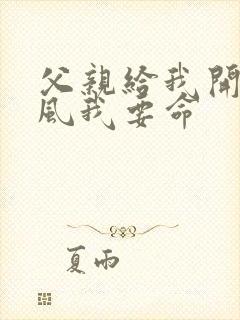 父親給我開
風我要命
夏雨